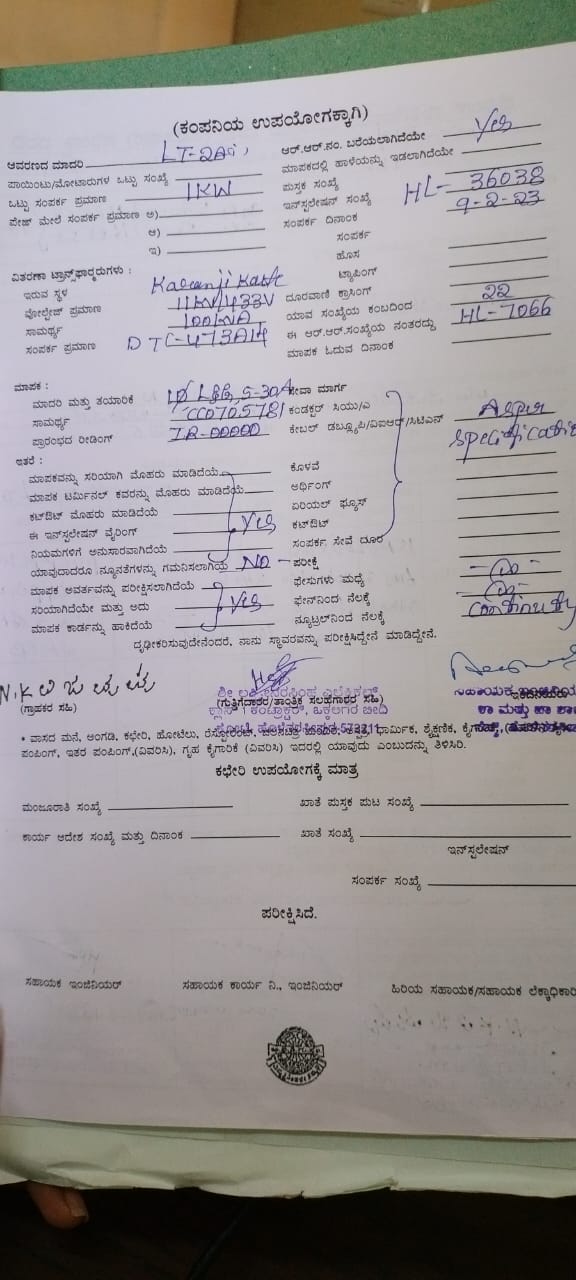 (ಕಂಪನಿಯ ಉಪಯೋಗಕ್ಕಾಗಿ)
ಆವರಣದ ಮಾದರಿ LT-2A ಆರ್.ಆರ್.ನಂ. ಬರೆಯಲಾಗಿದೆಯೇ Yes
ಪಾಯಿಂಟು/ಮೋಟಾರುಗಳ ಒಟ್ಟು ಸಂಖ್ಯೆ ಮಾಪಕದಲ್ಲಿ ಹಾಳೆಯನ್ನು ಇಡಲಾಗಿದೆಯೇ
ಒಟ್ಟು ಸಂಪರ್ಕ ಪ್ರಮಾಣ 1KW ಪುಸ್ತಕ ಸಂಖ್ಯೆ
ಪೇಜ್ ಮೇಲೆ ಸಂಪರ್ಕ ಪ್ರಮಾಣ ಅ) ಇನ್‌ಸ್ಟಲೇಷನ್ ಸಂಖ್ಯೆ HL-36038
ಆ) ಸಂಪರ್ಕ ದಿನಾಂಕ 9-2-23
ಇ) ಸಂಪರ್ಕ
ಹೊಸ
ವಿತರಣಾ ಟ್ರಾನ್ಸ್‌ಫಾರ್ಮರುಗಳು : ಟ್ಯಾಪಿಂಗ್
ಇರುವ ಸ್ಥಳ Karanji Katte ದೂರವಾಣಿ ಕ್ರಾಸಿಂಗ್
ವೋಲ್ಟೇಜ್ ಪ್ರಮಾಣ 11KV/433V ಯಾವ ಸಂಖ್ಯೆಯ ಕಂಬದಿಂದ 22
ಸಾಮರ್ಥ್ಯ 100KVA ಈ ಆರ್.ಆರ್.ಸಂಖ್ಯೆಯ ನಂತರದ್ದು HL-7066
ಸಂಪರ್ಕ ಪ್ರಮಾಣ DTC-473A14 ಮಾಪಕ ಓದುವ ದಿನಾಂಕ
ಮಾಪಕ :
ಮಾದರಿ ಮತ್ತು ತಯಾರಿಕೆ 5-30A ಸೇವಾ ಮಾರ್ಗ
ಸಾಮರ್ಥ್ಯ CC0705781 ಕಂಡಕ್ಟರ್ ಸಿಯು/ಎ As per
ಪ್ರಾರಂಭದ ರೀಡಿಂಗ್ IR-00000 ಕೇಬಲ್ ಡಬ್ಲ್ಯೂಪಿ/ವಿಐಆರ್/ಸಿಟಿಎನ್ specification
ಇತರೆ :
ಮಾಪಕವನ್ನು ಸರಿಯಾಗಿ ಮೊಹರು ಮಾಡಿದೆಯೆ ಕೊಳವೆ
ಮಾಪಕ ಟರ್ಮಿನಲ್ ಕವರನ್ನು ಮೊಹರು ಮಾಡಿದೆಯೆ ಅರ್ಥಿಂಗ್
ಕಟ್‌ಔಟ್ ಮೊಹರು ಮಾಡಿದೆಯೆ ಏರಿಯಲ್ ಫ್ಯೂಸ್
ಈ ಇನ್‌ಸ್ಟಲೇಷನ್ ವೈರಿಂಗ್ Yes ಕಟ್‌ಔಟ್
ನಿಯಮಗಳಿಗೆ ಅನುಸಾರವಾಗಿದೆಯೆ ಸಂಪರ್ಕ ಸೇವೆ ದೂರ
ಯಾವುದಾದರೂ ನ್ಯೂನತೆಗಳನ್ನು ಗಮನಿಸಲಾಗಿದೆಯೆ No ಪರೀಕ್ಷೆ
ಮಾಪಕ ಅವರ್ತವನ್ನು ಪರೀಕ್ಷಿಸಲಾಗಿದೆಯೆ ಫೇಸುಗಳು ಮಧ್ಯೆ
ಸರಿಯಾಗಿದೆಯೇ ಮತ್ತು ಅದು Yes ಫೇಸ್‌ನಿಂದ ನೆಲಕ್ಕೆ
ಮಾಪಕ ಕಾರ್ಡನ್ನು ಹಾಕಿದೆಯೆ ನ್ಯೂಟ್ರಲ್‌ನಿಂದ ನೆಲಕ್ಕೆ continuty
ದೃಢೀಕರಿಸುವುದೇನೆಂದರೆ, ನಾನು ಸ್ಥಾವರವನ್ನು ಪರೀಕ್ಷಿಸಿದ್ದೇನೆ ಮಾಡಿದ್ದೇನೆ.
(ಗ್ರಾಹಕರ ಸಹಿ) (ಗುತ್ತಿಗೆದಾರರ/ತಾಂತ್ರಿಕ ಸಲಹೆಗಾರರ ಸಹಿ)
• ವಾಸದ ಮನೆ, ಅಂಗಡಿ, ಕಛೇರಿ, ಹೋಟೆಲು, ರೆಸ್ಟೋರೆಂಟ್, ಧಾರ್ಮಿಕ, ಶೈಕ್ಷಣಿಕ,
ಪಂಪಿಂಗ್, ಇತರ ಪಂಪಿಂಗ್,(ವಿವರಿಸಿ), ಗೃಹ ಕೈಗಾರಿಕೆ (ವಿವರಿಸಿ) ಇದರಲ್ಲಿ ಯಾವುದು ಎಂಬುದನ್ನು ತಿಳಿಸಿರಿ.
ಕಛೇರಿ ಉಪಯೋಗಕ್ಕೆ ಮಾತ್ರ
ಮಂಜೂರಾತಿ ಸಂಖ್ಯೆ ಖಾತೆ ಪುಸ್ತಕ ಪುಟ ಸಂಖ್ಯೆ
ಕಾರ್ಯ ಆದೇಶ ಸಂಖ್ಯೆ ಮತ್ತು ದಿನಾಂಕ ಖಾತೆ ಸಂಖ್ಯೆ
ಇನ್‌ಸ್ಟಲೇಷನ್
ಸಂಪರ್ಕ ಸಂಖ್ಯೆ
ಪರೀಕ್ಷಿಸಿದೆ.
ಸಹಾಯಕ ಇಂಜಿನಿಯರ್ ಸಹಾಯಕ ಕಾರ್ಯ ನಿ., ಇಂಜಿನಿಯರ್ ಹಿರಿಯ ಸಹಾಯಕ/ಸಹಾಯಕ ಲೆಕ್ಕಾಧಿಕಾರಿ